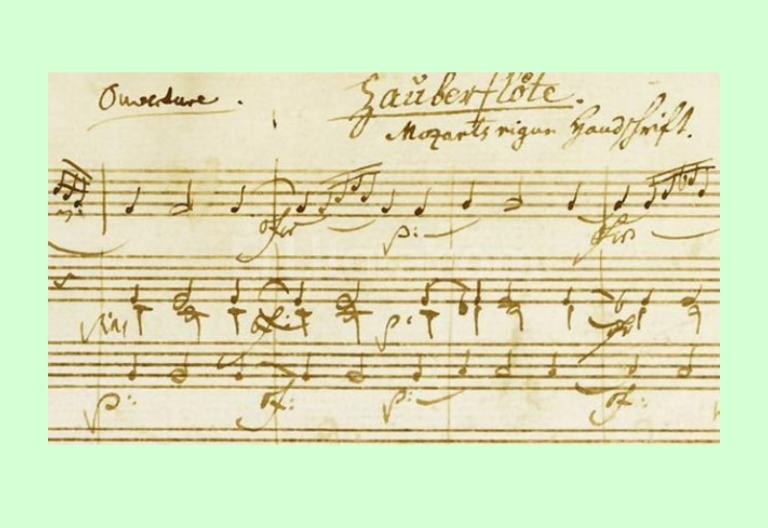 Ouverture.
Zauberflöte.
Mozarts eigne Handschrift.
sfp
p:
sfp
p:
p:
sf:
p:
sf: